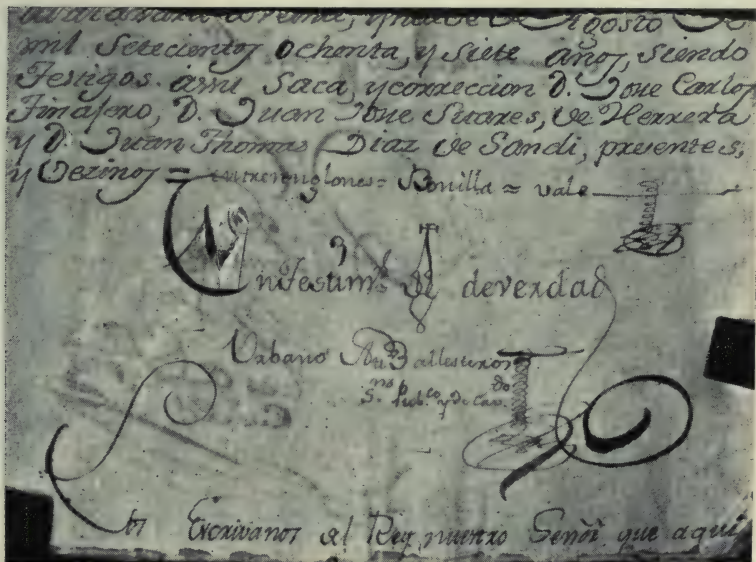 de Agosto de
mil Setecientos ochenta, y Siete años, siendo
Testigos ami Saca, y correccion D. Jose Carlos
Finajero, D. Juan Jose Suares, de Herrera
y D. Juan Thomas Diaz de Sandi, presentes,
y Vezinos = entrerenglones = Bonilla = vale
En testim.o de verdad
Urbano Ballesteros
S. pub.co y de Cav.do
Escrivanos del Rey nuestro Señor que aqui